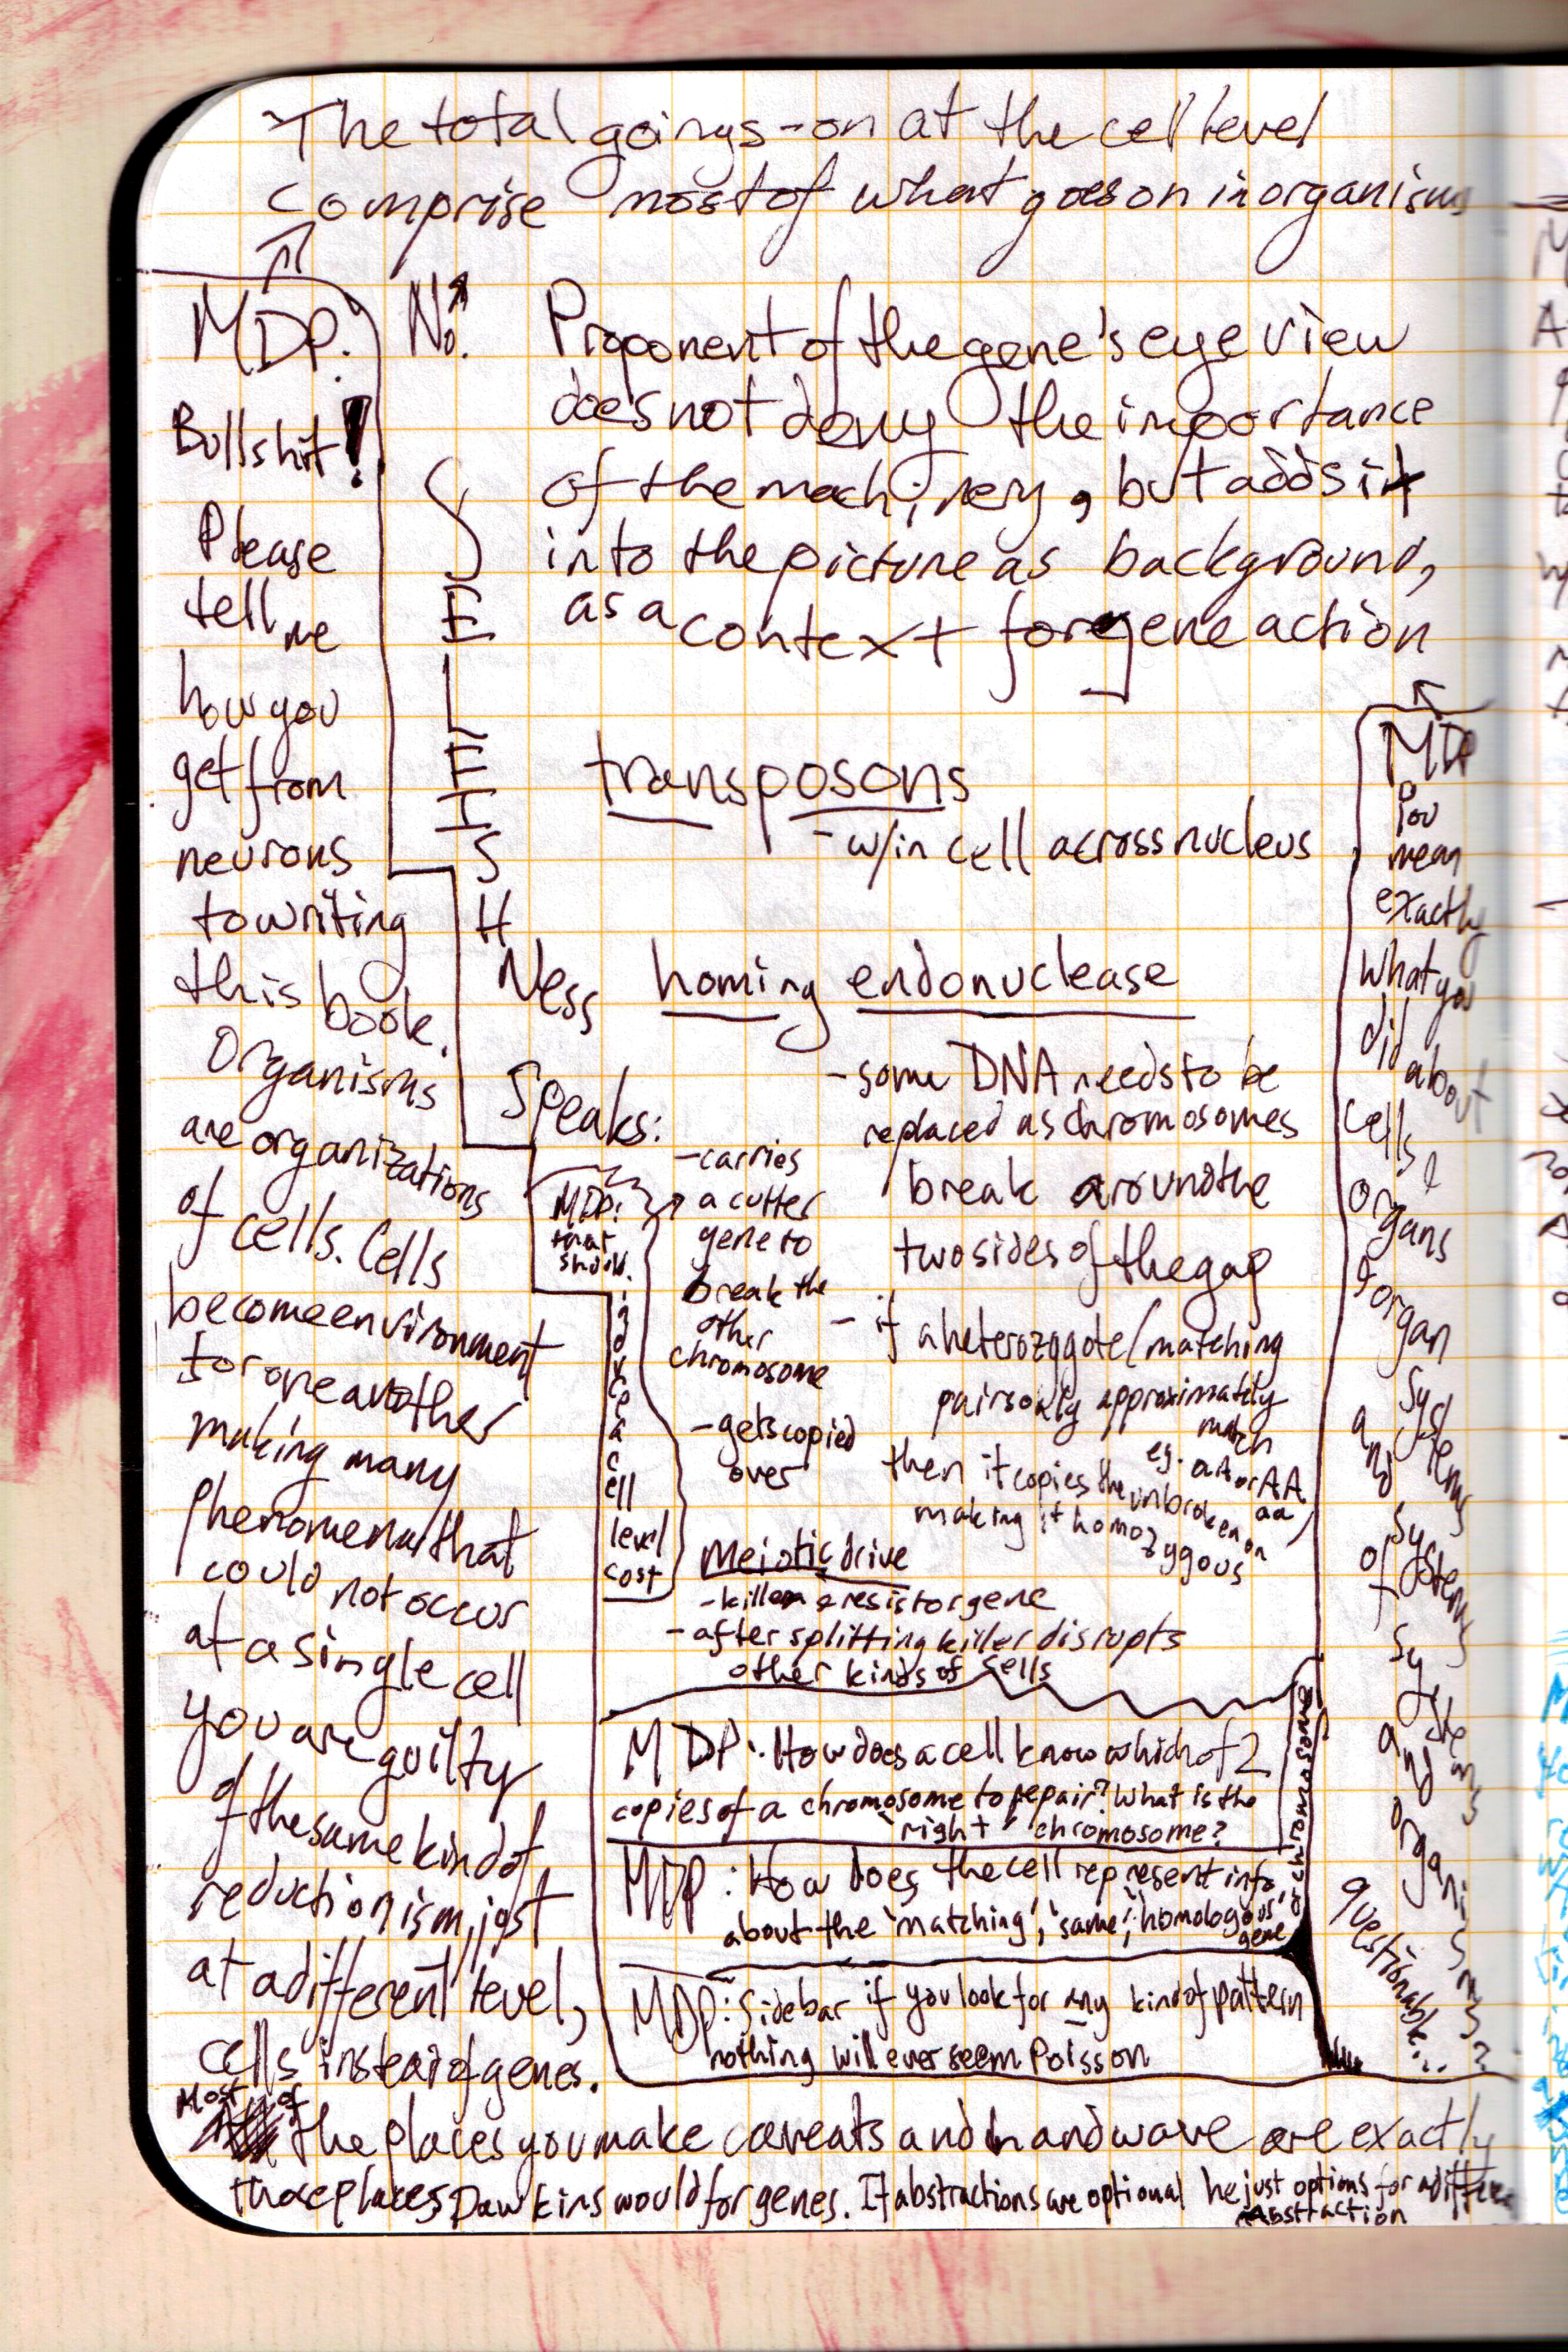 The total goings-on at the cell level
comprise most of what goes on in organisms
MDP:
Bullshit!
Please
tell me
how you
get from
neurons
to writing
this book.
Organisms
are organizations
of cells. Cells
become environment
for one another
making many
phenomena that
could not occur
at a single cell
you are guilty
of the same kind of
reductionism, just
at a different level,
cells instead of genes.
Most of
the places you make caveats and handwave are exactly
those places Dawkins would for genes. If abstractions are optional he just options for a different
Abstraction
No.
Proponent of the gene's eye view
does not deny the importance
of the machinery, but adds it
into the picture as background,
as a context for gene action
S
E
L
F
I
S
H
Ness
Speaks:
transposons
- w/in cell across nucleus
homing endonuclease
- some DNA needs to be
replaced as chromosomes
break around the
two sides of the gap
- if a heterozygote/matching
pairs only approximately
match
eg. aA or AA, aa
then it copies the unbroken on
making it homozygous
- carries
a cutter
gene to
break the
other
chromosome
- gets copied
over
MDP:
that
should
induce
a
cell
level
cost
meiotic drive
- killer & resistor gene
- after splitting killer disrupts
other kinds of cells
MDP: How does a cell know which of 2
copies of a chromosome to repair? What is the
"right" chromosome?
MDP: How does the cell represent info
about the 'matching', 'same', 'homologous'
gene
or chromosome
MDP: Sidebar if you look for any kind of pattern
nothing will ever seem Poisson
MDP
You
mean
exactly
what you
did about
cells &
organs
& organ
systems
and
systems
of
systems
and
organisms?
questionable...